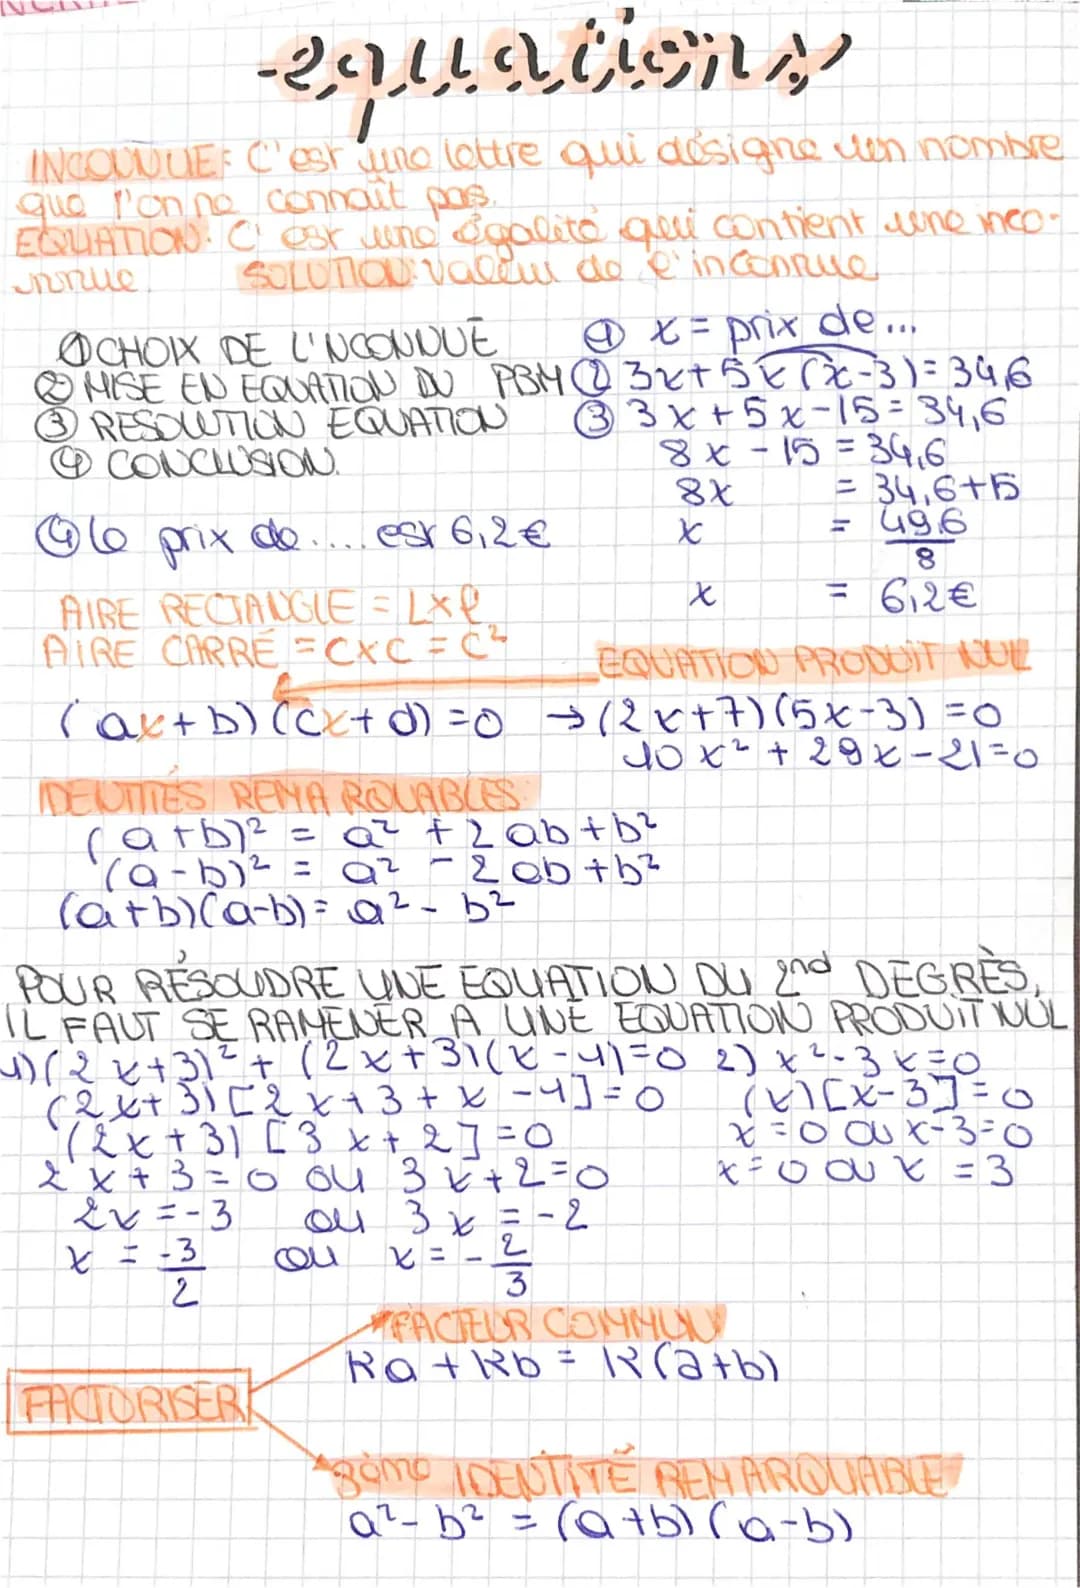 équations
INCONNUE: C'est une lettre qui désigne un nombre
que l'on ne connaît pas.
EQUATION: C'est une égalité qui contient une inco-
nnue. SOLUTION: valeur de l'inconnue
① CHOIX DE L'INCONNUE
② MISE EN EQUATION DU PBM
③ RESOLUTION EQUATION
④ CONCLUSION.
① x = prix de...
② 3x + 5x(x-3) = 34,6
③ 3x + 5x - 15 = 34,6
8x - 15 = 34,6
8x = 34,6+15
x = 49,6/8
x = 6,2€
④ le prix de.... est 6,2€
AIRE RECTANGLE = L×l
AIRE CARRÉ = C×C = C²
EQUATION PRODUIT NUL
(ax+b)(cx+d)=0 → (2x+7)(5x-3)=0
10x² + 29x - 21=0
IDENTITÉS REMARQUABLES:
(a+b)² = a² + 2ab + b²
(a-b)² = a² - 2ab + b²
(a+b)(a-b) = a² - b²
POUR RÉSOUDRE UNE EQUATION DU 2nd DEGRÈS,
IL FAUT SE RAMENER A UNE EQUATION PRODUIT NUL
1) (2x+3)² + (2x+3)(x-1)=0
(2x+3)[2x+3+x-1]=0
(2x+3)[3x+2]=0
2x+3=0 ou 3x+2=0
2x=-3 ou 3x=-2
x = -3/2 ou x = -2/3
2) x²-3x=0
(x)[x-3]=0
x=0 ou x-3=0
x=0 ou x=3
FACTORISER
FACTEUR COMMUN
Ka + Kb = K(a+b)
3ème IDENTITÉ REMARQUABLE
a² - b² = (a+b)(a-b)